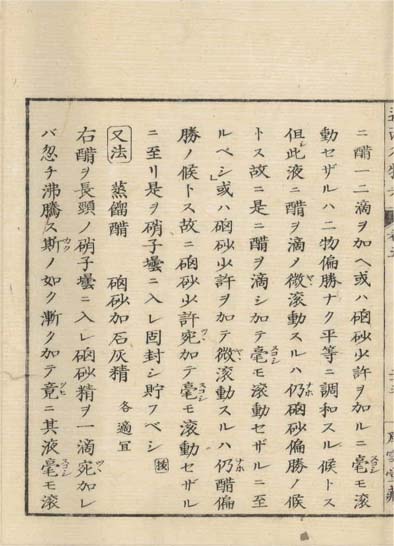 ニ醋一二滴ヲ加ヘ或ハ硇砂少許ヲ加ルニ毫モ滾
動セザルハ二物偏勝ナク平等ニ調和スル候トス
但此液ニ醋ヲ滴ノ微滾動スルハ仍硇砂偏勝ノ候
トス故ニ是ニ醋ヲ滴シ加テ毫モ滾動セザルニ至
ルベシ或ハ硇砂少許ヲ加テ微滾動スルハ仍醋偏
勝ノ候トス故ニ硇砂少許宛加テ毫モ滾動セザル
ニ至リ是ヲ硝子壜ニ入レ固封シ貯フベシ
又法 蒸餾醋 硇砂加石灰精 各適宜
右醋ヲ長頭ノ硝子壜ニ入レ硇砂精ヲ一滴宛加レ
バ忽チ沸騰ス斯ノ如ク漸ク加テ竟ニ其液毫モ滾